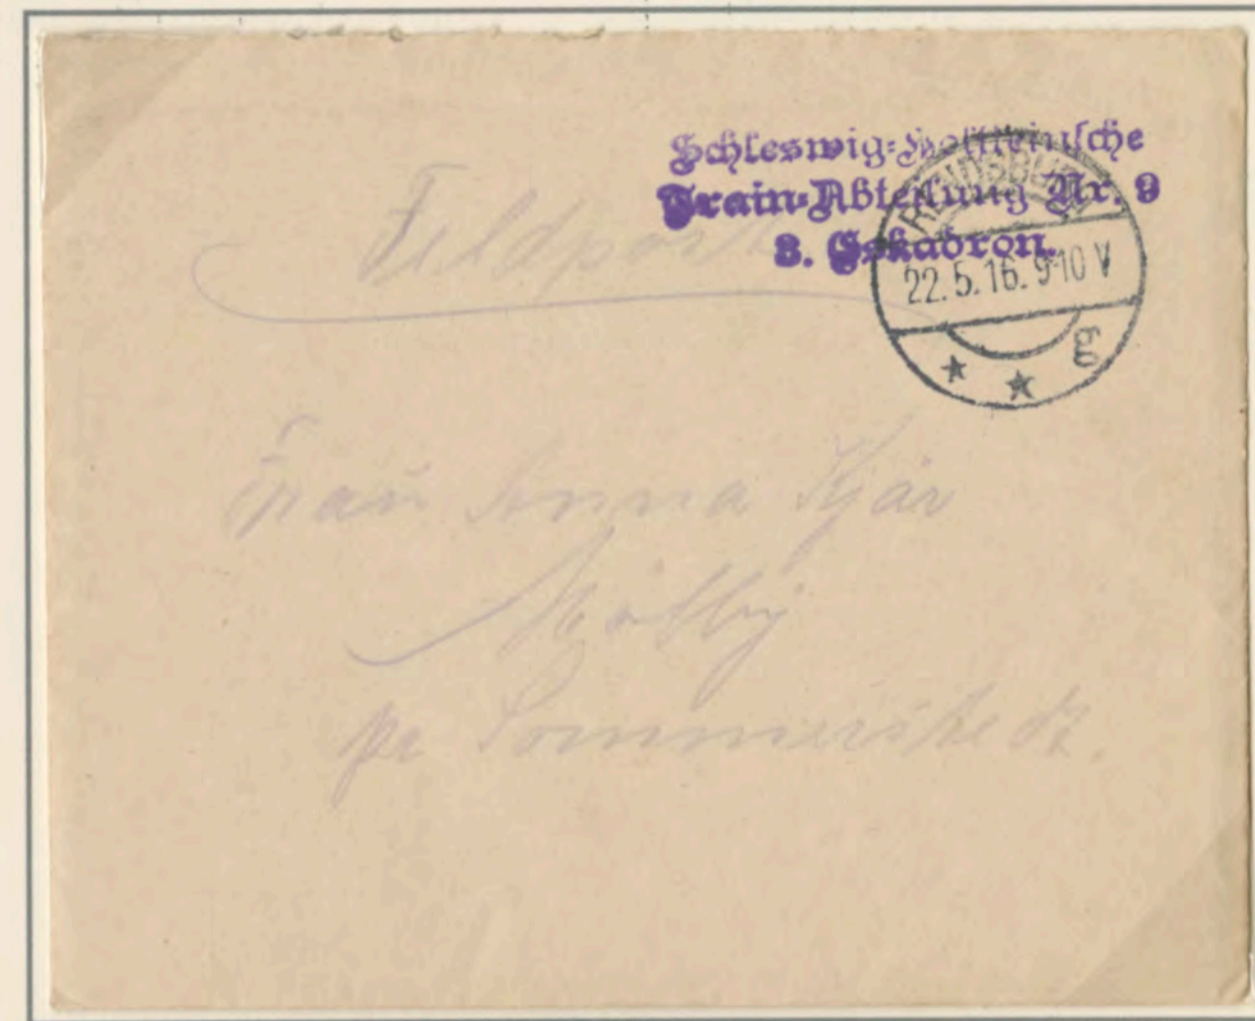 Schleswig-Holsteinische
Train-Abteilung Nr. 9
3. Eskadron.
RENDSBURG
22.5.16. 9-10 V
g
Feldpost
Frau Anna Kjär
Mölby
pr Sommerstedt.